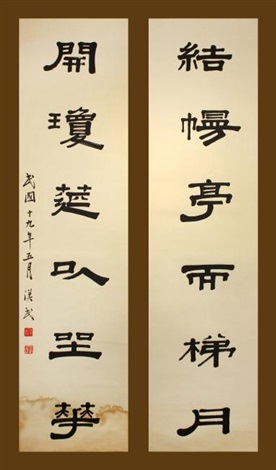 結幔亭而梯月
開瓊筵以坐華
民國十九年五月 漢民